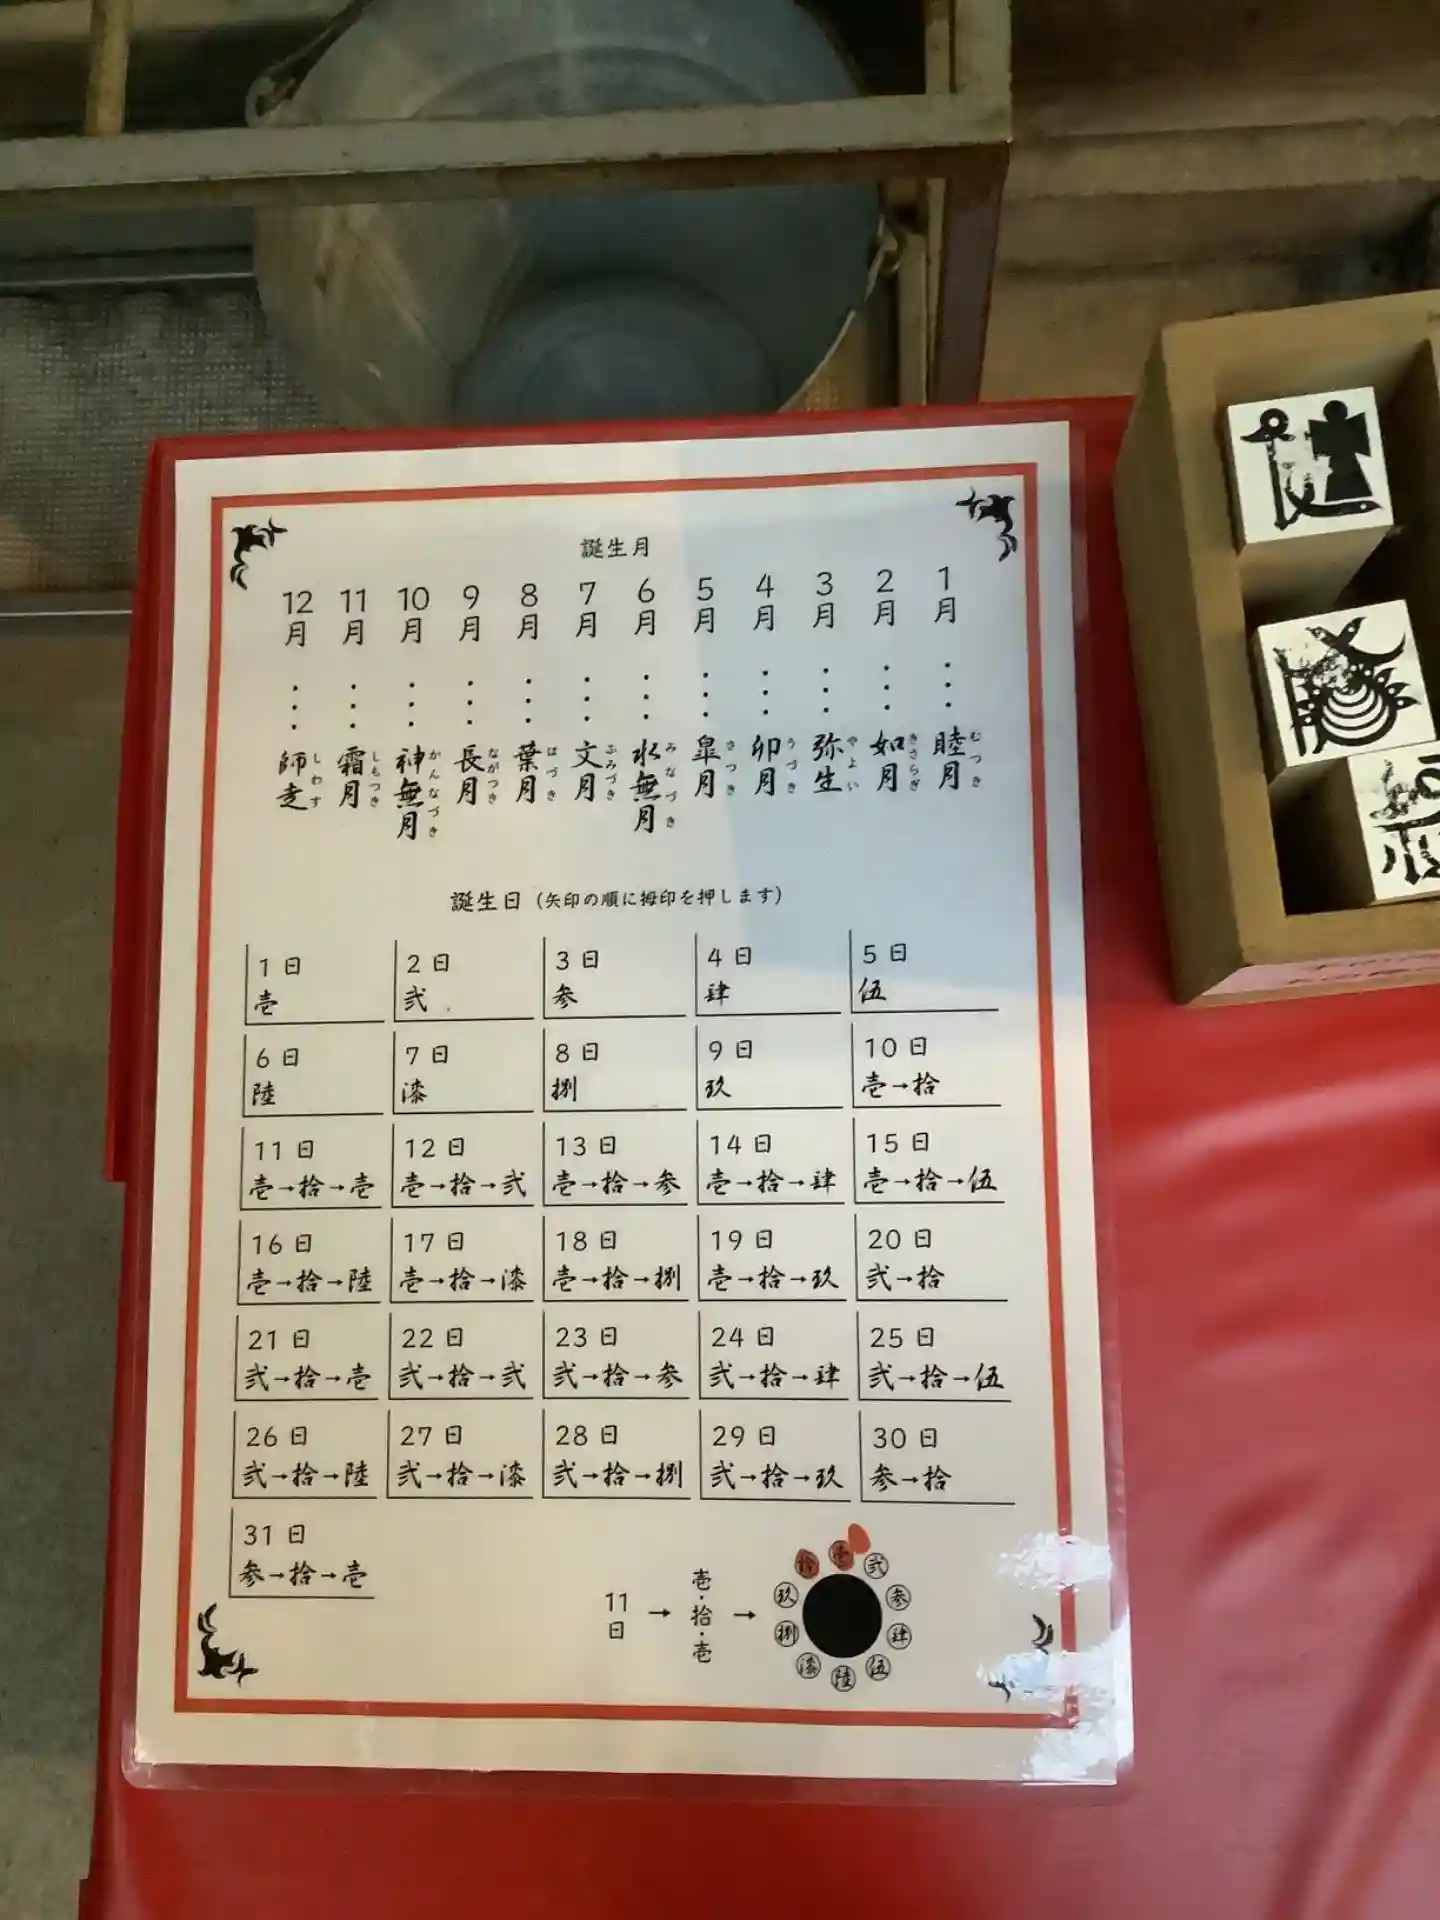 誕生月
1月・・・睦月 むつき
2月・・・如月 きさらぎ
3月・・・弥生 やよい
4月・・・卯月 うづき
5月・・・皐月 さつき
6月・・・水無月 みなづき
7月・・・文月 ふみづき
8月・・・葉月 はづき
9月・・・長月 ながつき
10月・・・神無月 かんなづき
11月・・・霜月 しもつき
12月・・・師走 しわす
誕生日(矢印の順に拇印を押します)
1日 2日 3日 4日 5日
壱 弐 参 肆 伍
6日 7日 8日 9日 10日
陸 漆 捌 玖 壱→拾
11日 12日 13日 14日 15日
壱→拾→壱 壱→拾→弐 壱→拾→参 壱→拾→肆 壱→拾→伍
16日 17日 18日 19日 20日
壱→拾→陸 壱→拾→漆 壱→拾→捌 壱→拾→玖 弐→拾
21日 22日 23日 24日 25日
弐→拾→壱 弐→拾→弐 弐→拾→参 弐→拾→肆 弐→拾→伍
26日 27日 28日 29日 30日
弐→拾→陸 弐→拾→漆 弐→拾→捌 弐→拾→玖 参→拾
31日
参→拾→壱
11日 → 壱・拾・壱 →
壱 弐 参 肆 伍 陸 漆 捌 玖 拾